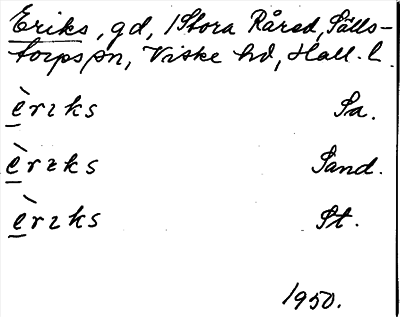 Eriks, gd, 1 Stora Råred, Sälls-
torps sn, Viske hd, Hall. l.
è̲rıks Sa.
è̲rızks Sand.
è̲rıks St.
1950.